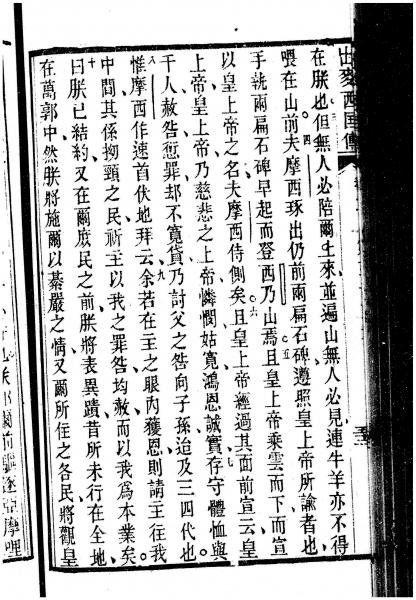 出麥西國傳
在朕也但無人必陪爾上來並遍山無人必見連牛羊亦不得
喂在山前夫摩西琢出仍前兩扁石碑遵照皇上帝所諭者也
四
五
手執兩扁石碑早起而登西乃山焉且皇上帝乘雲而下而宣
以皇上帝之名夫摩西侍側矣且皇上帝經過其面前宣云皇
六
上帝皇上帝乃慈悲之上帝憐憫姑寬鴻恩誠實存守體恤與
七
千人赦咎愆罪却不寬貸乃討父之咎向子孫迨及三四代也
八
惟摩西作速首伏地拜云余若在主之眼內獲恩則請主往我
九
中間其係拗頸之民祈主以我之罪咎均赦而以我為本業矣
十
曰朕已結約又在爾庶民之前朕將表異蹟昔所未行在全地
在萬郭中然朕將施爾以綦嚴之情又爾所住之各民將觀皇